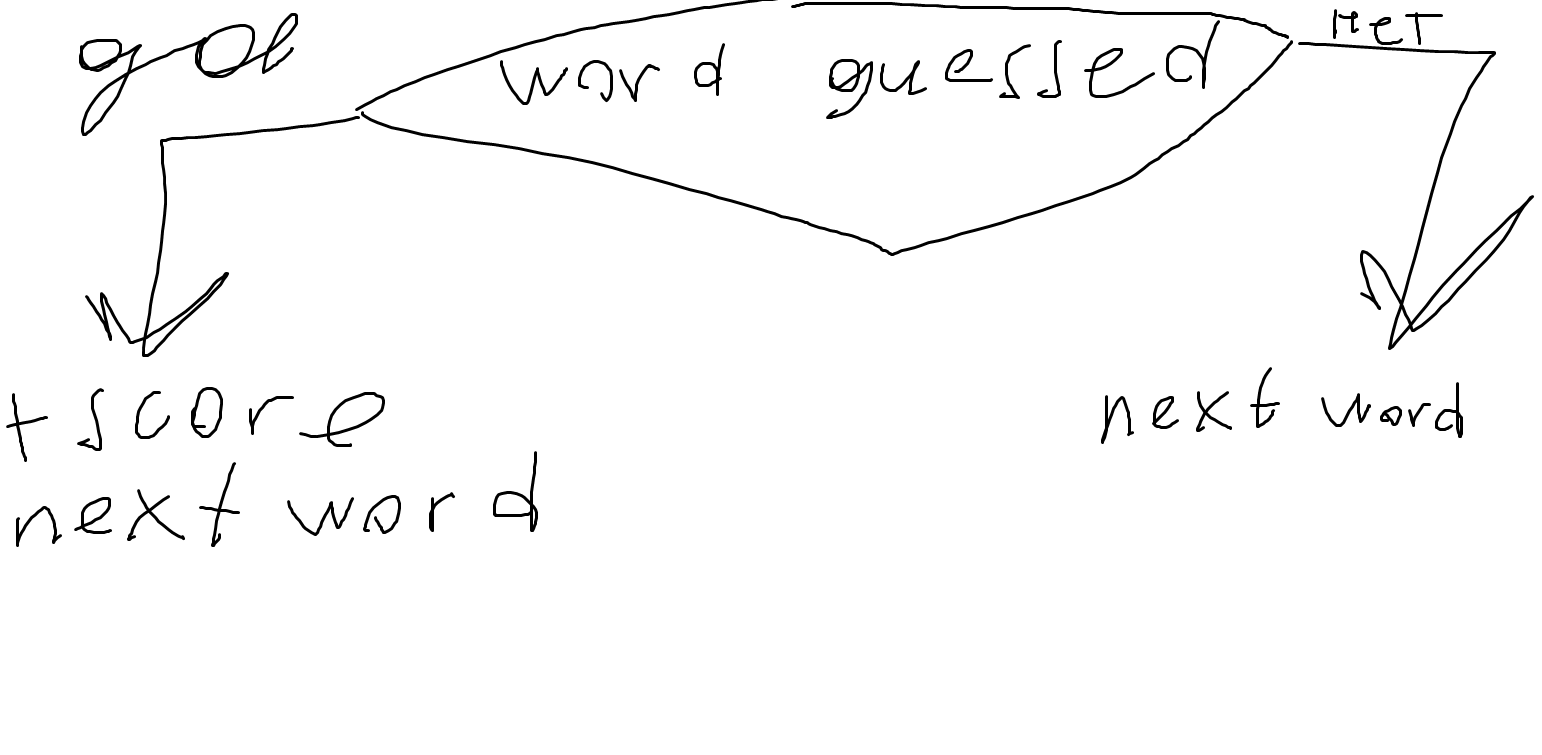 да
word guessed
нет
+ score
next word
next word